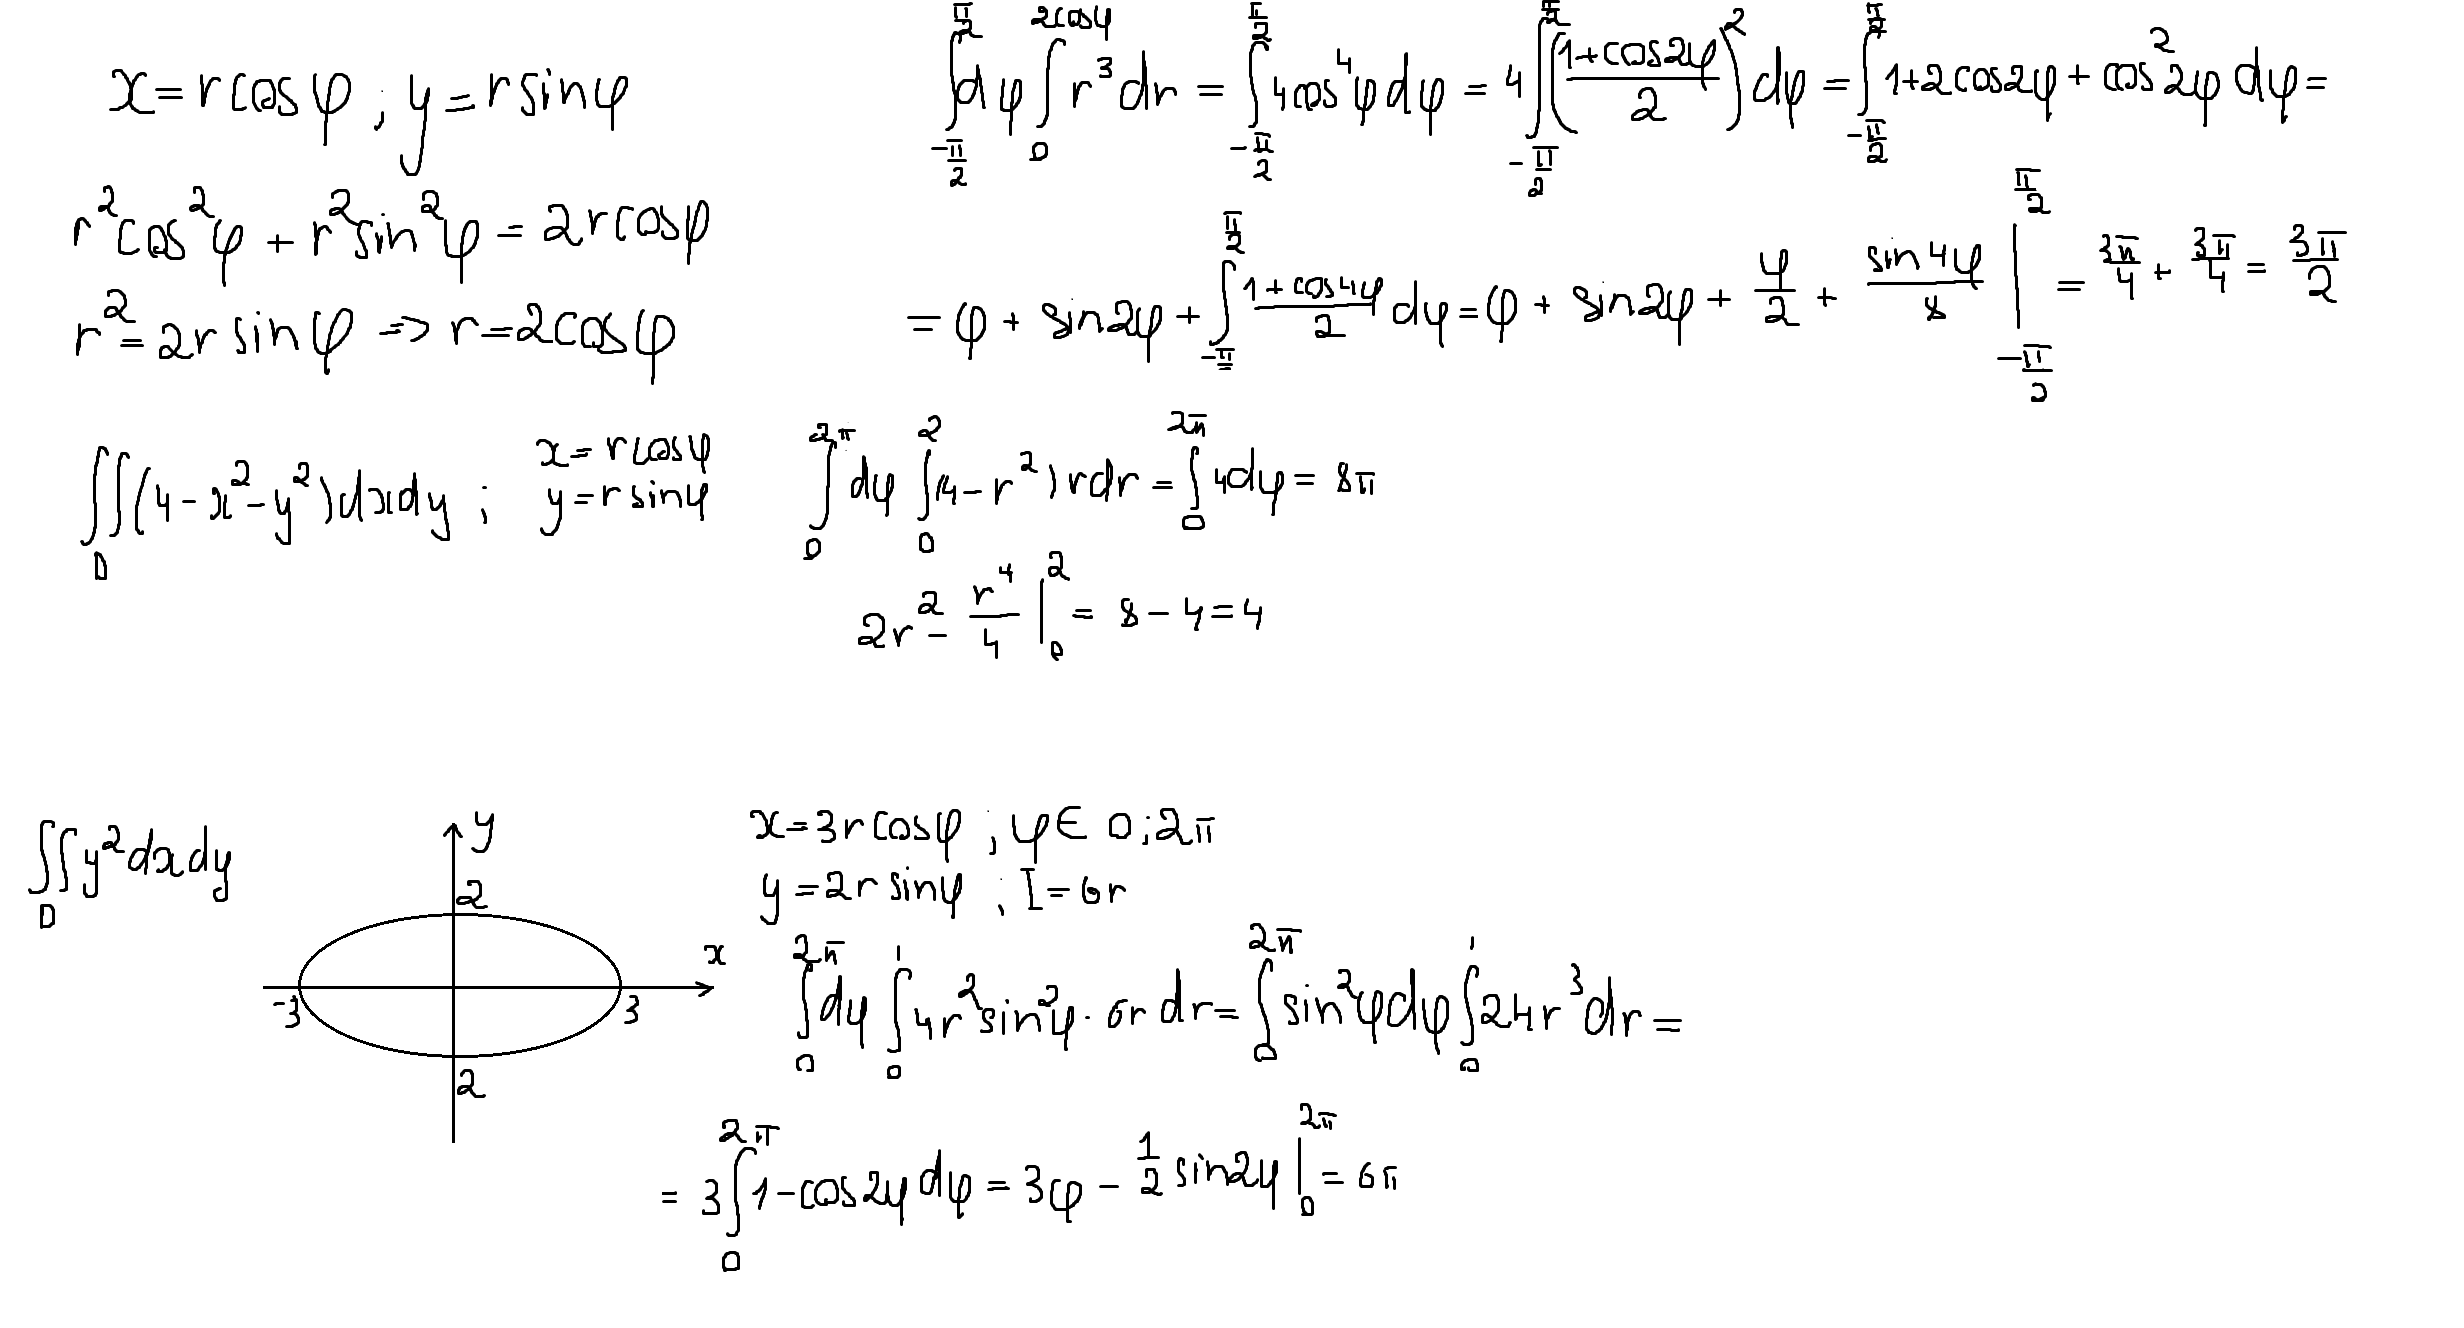 x = r cosφ ; y = r sinφ
r² cos²φ + r² sin²φ = 2r cosφ
r² = 2r sinφ => r = 2cosφ
∫_{-π/2}^{π/2} dφ ∫_0^{2cosφ} r³ dr = ∫_{-π/2}^{π/2} 4cos⁴φ dφ = 4 ∫_{-π/2}^{π/2} ((1+cos2φ)/2)² dφ = ∫_{-π/2}^{π/2} 1+2cos2φ + cos²2φ dφ =
= φ + sin2φ + ∫_{-π/2}^{π/2} (1+cos4φ)/2 dφ = φ + sin2φ + φ/2 + sin4φ/8 |_{-π/2}^{π/2} = 3π/4 + 3π/4 = 3π/2
∬_D (4 - x² - y²) dx dy ;
x = r cosφ
y = r sinφ
∫_0^{2π} dφ ∫_0^2 (4 - r²) r dr = ∫_0^{2π} 4dφ = 8π
2r² - r⁴/4 |_0^2 = 8 - 4 = 4
∬_D y² dx dy
y
2
x
-3
3
2
x = 3r cosφ ; φ ∈ 0;2π
y = 2r sinφ ; I = 6r
∫_0^{2π} dφ ∫_0^1 4r² sin²φ · 6r dr = ∫_0^{2π} sin²φ dφ ∫_0^1 24r³ dr =
= 3 ∫_0^{2π} 1 - cos2φ dφ = 3φ - 1/2 sin2φ |_0^{2π} = 6π